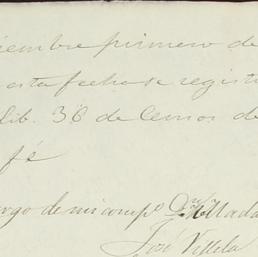 iembre primero de
esta fecha se registr
lib. 36 de Censos de
fé
argo de mi comp.º D.n
José Villela